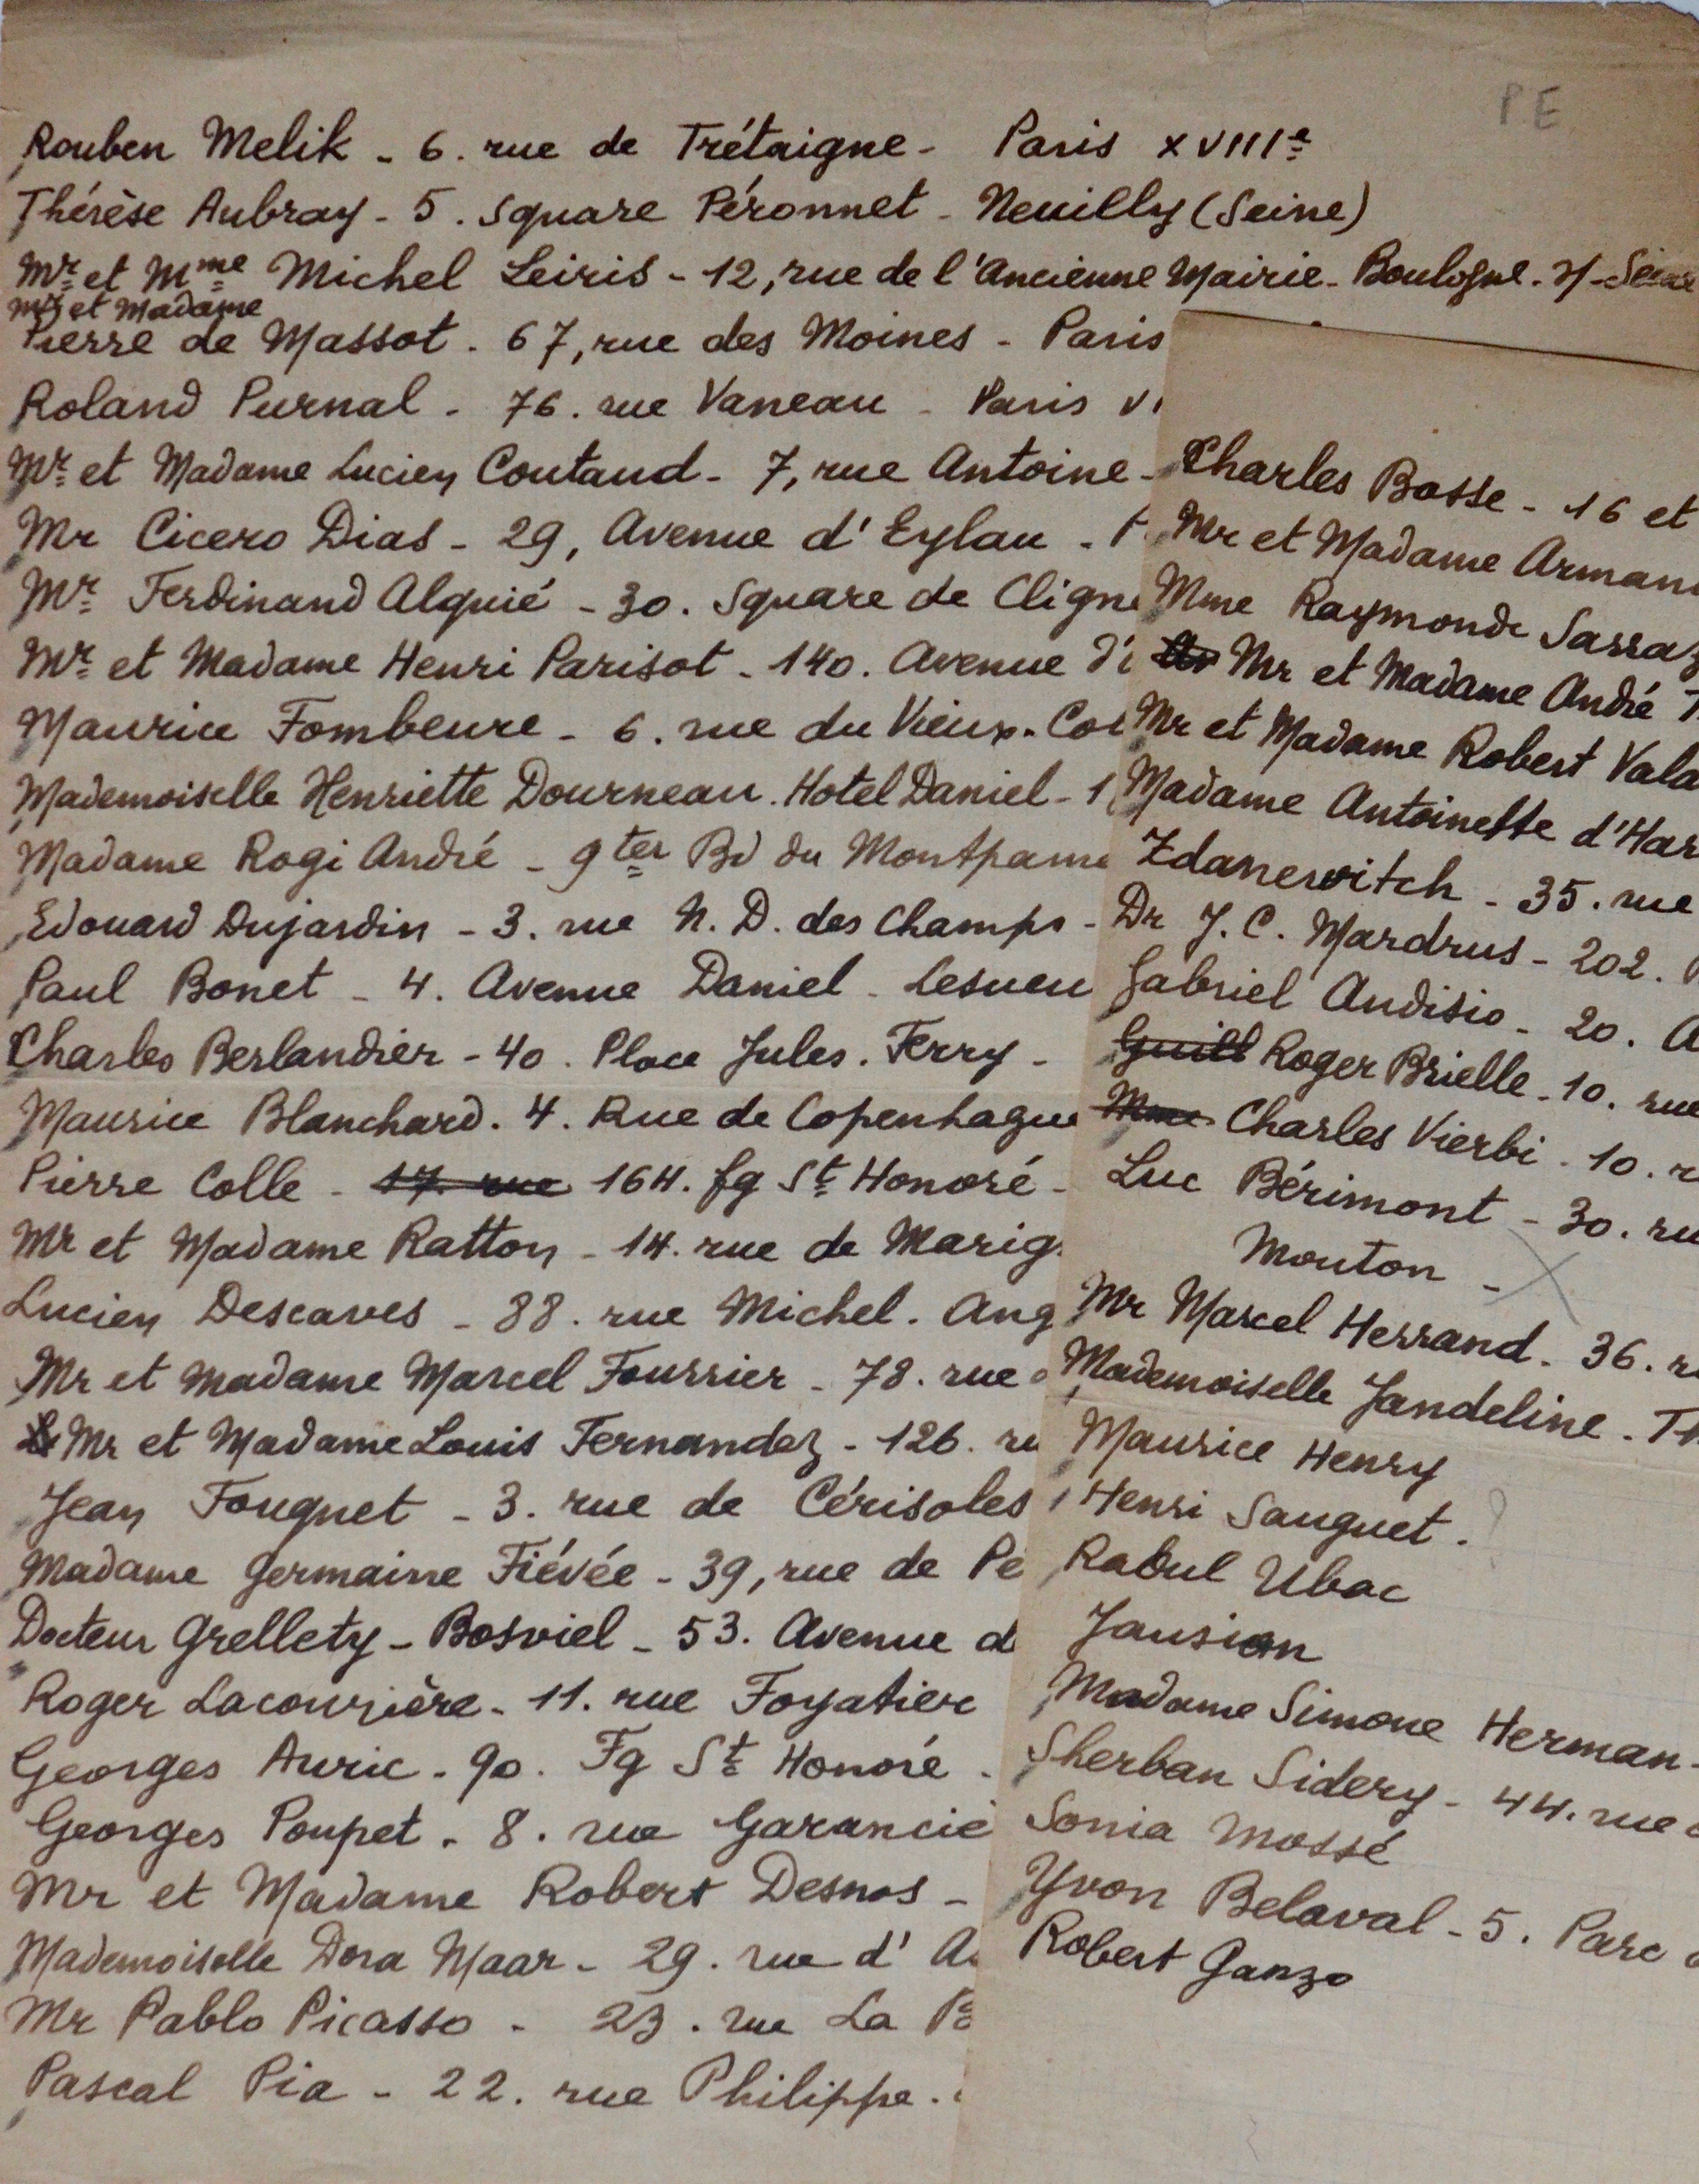 P E
Rouben Melik - 6. rue de Trétaigne - Paris XVIIIe
Thérèse Aubray - 5. Square Péronnet - Neuilly (Seine)
Mr et Mme Michel Leiris - 12, rue de l'Ancienne Mairie - Boulogne - s/-Seine
Mr et Madame
Pierre de Massot - 67, rue des Moines - Paris
Roland Purnal - 76. rue Vaneau - Paris VI
Mr et Madame Lucien Coutaud - 7, rue Antoine -
Mr Cicero Dias - 29, Avenue d'Eylau -
Mr Ferdinand Alquié - 30. Square de Clign
Mr et Madame Henri Parisot - 140. Avenue d'
Maurice Fombeure - 6. rue du Vieux-Col
Mademoiselle Henriette Dourneau. Hotel Daniel - 1
Madame Rogi André - 9ter Bd du Montparna
Edouard Dujardin - 3. rue N. D. des Champs -
Paul Bonet - 4. Avenue Daniel - Lesueu
Charles Berlandier - 40. Place Jules. Ferry -
Maurice Blanchard. 4. Rue de Copenhague
Pierre Colle - 17. rue 164. fg St Honoré -
Mr et Madame Ratton - 14. rue de Marig
Lucien Descaves - 88. rue Michel. Ang
Mr et Madame Marcel Fourrier - 78. rue
Mr et Madame Louis Fernandez - 126. ru
Jean Fouquet - 3. rue de Cérisoles
Madame Germaine Fiévée - 39, rue de Pe
Docteur Grellety - Bosviel - 53. Avenue d
Roger Lacourière - 11. rue Foyatier
Georges Auric - 90. Fg St Honoré -
Georges Poupet - 8. rue Garanciè
Mr et Madame Robert Desnos -
Mademoiselle Dora Maar - 29. rue d'A
Mr Pablo Picasso - 23. rue La Bo
Pascal Pia - 22. rue Philippe.
Charles Bosse - 16 et
Mr et Madame Arman
Mme Raymonde Sarraz
Mr et Madame André
Mr et Madame Robert Vala
Madame Antoinette d'Har
Zdanewitch - 35. rue
Dr J. C. Mardrus - 202.
Gabriel Audisio - 20. A
Guill Roger Brielle - 10. rue
Mme Charles Vierbi - 10. r
Luc Bérimont - 30. ru
Mouton -
Mr Marcel Herrand - 36. r
Mademoiselle Jandeline - Th
Maurice Henry
Henri Sauguet. ?
Raoul Ubac
Jausion
Madame Simone Herman -
Sherban Sidery - 44. rue
Sonia Mossé
Yvon Belaval - 5. Parc
Robert Ganzo